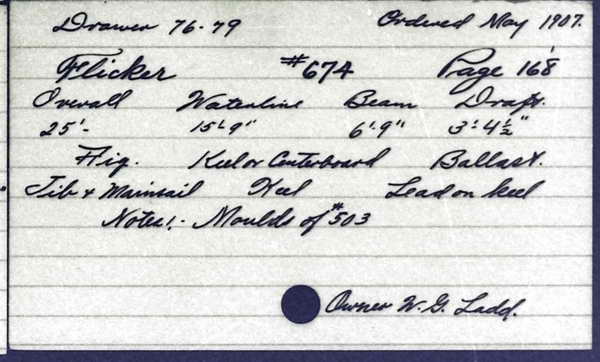 Drawer 76-79 Ordered May 1907.
Flicker #674 Page 168
Overall Waterline Beam Draft.
25'- 15'-9" 6'-9" 3'-4½"
Rig. Keel or Centerboard Ballast.
Jib & Mainsail Keel Lead on keel
Notes:- Moulds of #503
Owner W. G. Ladd.